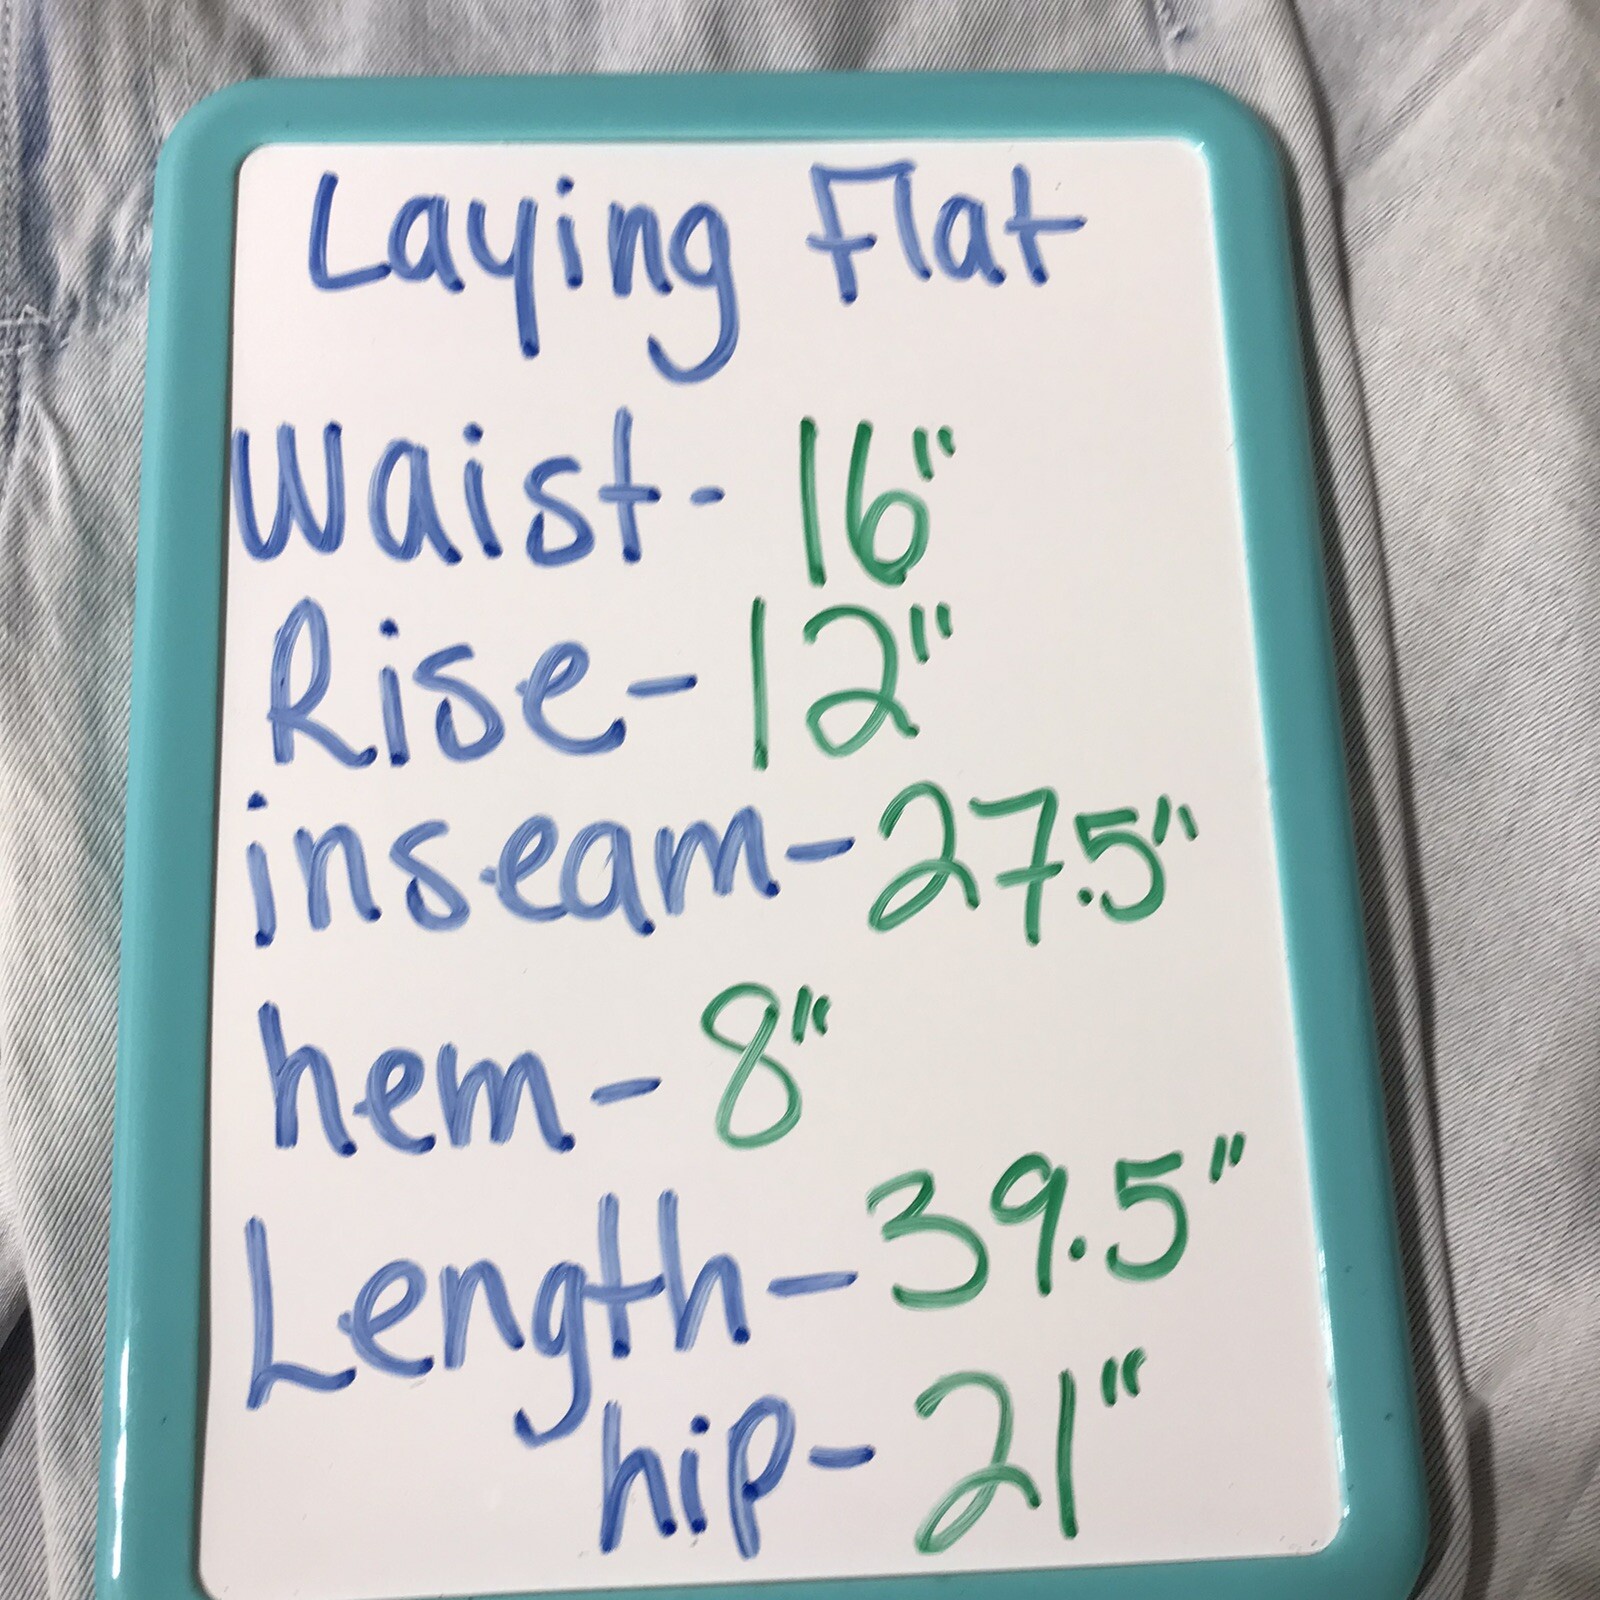 Laying Flat
Waist- 16"
Rise- 12"
inseam- 27.5"
hem- 8"
Length- 39.5"
hip- 21"